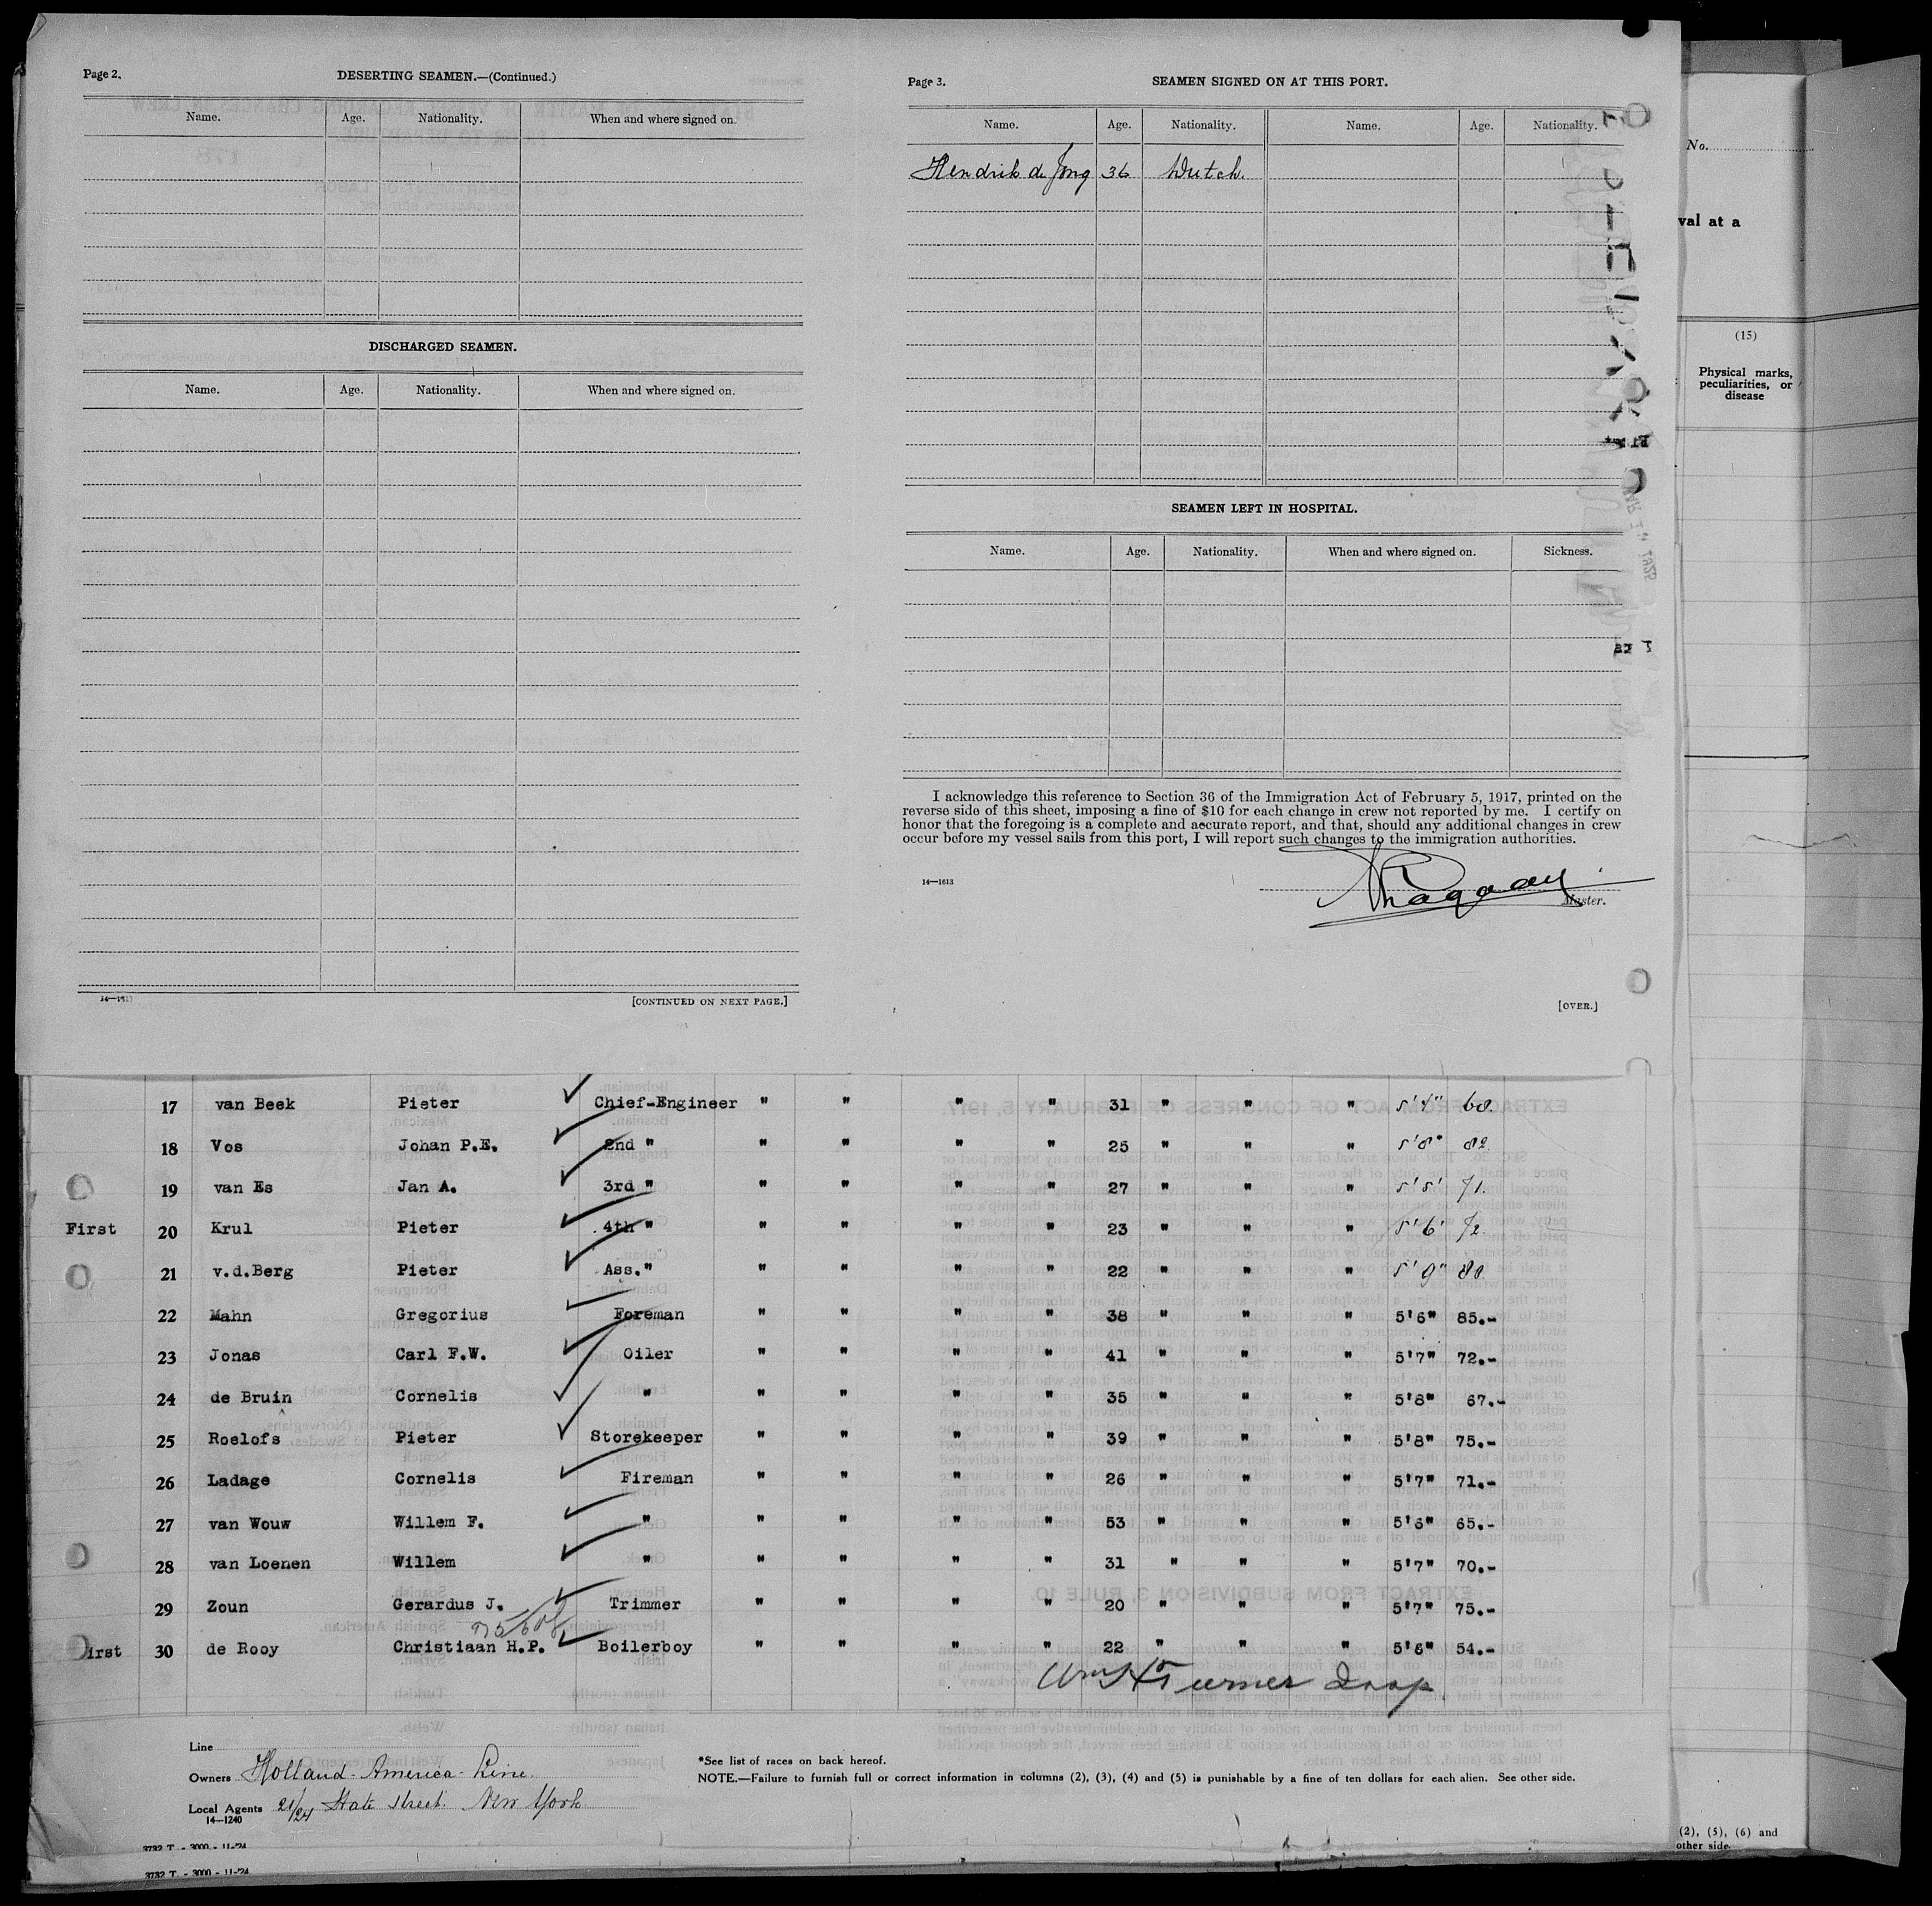 Page 2.
DESERTING SEAMEN.—(Continued.)
Name. Age. Nationality. When and where signed on.
DISCHARGED SEAMEN.
Name. Age. Nationality. When and where signed on.
[CONTINUED ON NEXT PAGE.]
Page 3.
SEAMEN SIGNED ON AT THIS PORT.
Name. Age. Nationality. Name. Age. Nationality.
Hendrik de Jong 36 Dutch.
SEAMEN LEFT IN HOSPITAL.
Name. Age. Nationality. When and where signed on. Sickness.
I acknowledge this reference to Section 36 of the Immigration Act of February 5, 1917, printed on the
reverse side of this sheet, imposing a fine of $10 for each change in crew not reported by me. I certify on
honor that the foregoing is a complete and accurate report, and that, should any additional changes in crew
occur before my vessel sails from this port, I will report such changes to the immigration authorities.
14—1613
Master.
[OVER.]
No.
val at a
(15)
Physical marks,
peculiarities, or
disease
17 van Beek Pieter Chief-Engineer " " " " 31 " " " 5'4" 68.
18 Vos Johan P.E. 2nd " " " " " 25 " " " 5'8" 82
19 van Es Jan A. 3rd " " " " " 27 " " " 5'5' 71.
First 20 Krul Pieter 4th " " " " " 23 " " " 5'6' 72.
21 v.d.Berg Pieter Ass." " " " " 22 " " " 5'9" 80.
22 Mahn Gregorius Foreman " " " " 38 " " " 5'6" 85.-
23 Jonas Carl F.W. Oiler " " " " 41 " " " 5'7" 72.-
24 de Bruin Cornelis " " " " " 35 " " " 5'8" 67.-
25 Roelofs Pieter Storekeeper " " " " 39 " " " 5'8" 75.-
26 Ladage Cornelis Fireman " " " " 26 " " " 5'7" 71.-
27 van Wouw Willem F. " " " " " 53 " " " 5'6" 65.-
28 van Loenen Willem " " " " " 31 " " " 5'7" 70.-
29 Zoun Gerardus J. Trimmer " " " " 20 " " " 5'7" 75.-
irst 30 de Rooy Christiaan H.P. Boilerboy " " " " 22 " " " 5'6" 54.-
Wm H Turner Insp
Line
Owners Holland-America-Line.
Local Agents 21/24 State street. New York
14—1240
*See list of races on back hereof.
NOTE.—Failure to furnish full or correct information in columns (2), (3), (4) and (5) is punishable by a fine of ten dollars for each alien. See other side.
3732 T. - 3000 - 11-'24
3732 T. - 3000 - 11-'24
(2), (5), (6) and
other side.